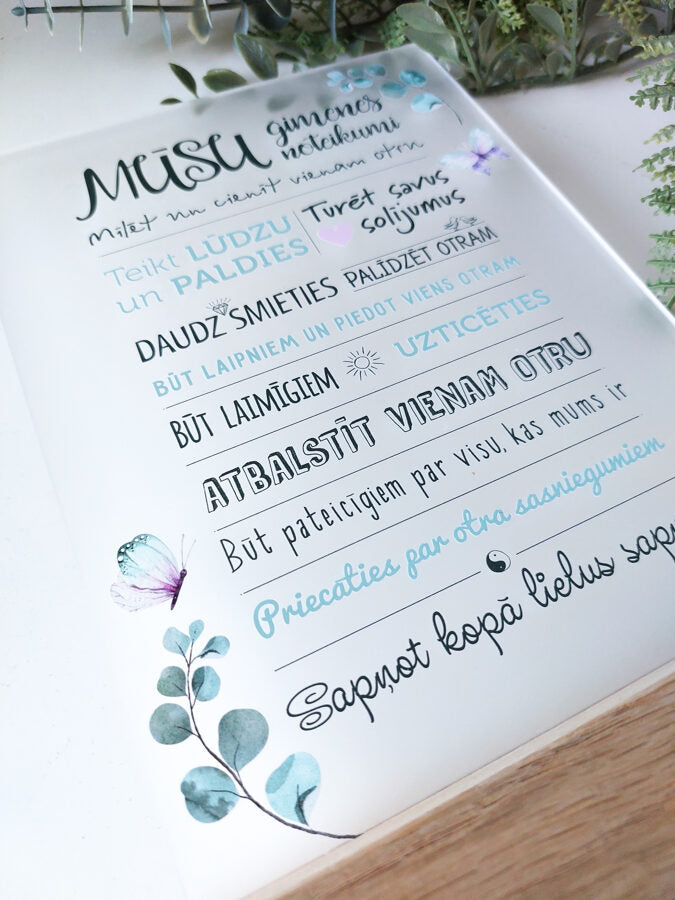 MŪSU ģimenes noteikumi
Mīlēt un cienīt vienam otru
Teikt LŪDZU un PALDIES
Turēt savus solījumus
DAUDZ SMIETIES
PALĪDZĒT OTRAM
BŪT LAIPNIEM UN PIEDOT VIENS OTRAM
BŪT LAIMĪGIEM
UZTICĒTIES
ATBALSTĪT VIENAM OTRU
Būt pateicīgiem par visu, kas mums ir
Priecāties par otra sasniegumiem
Sapņot kopā lielus